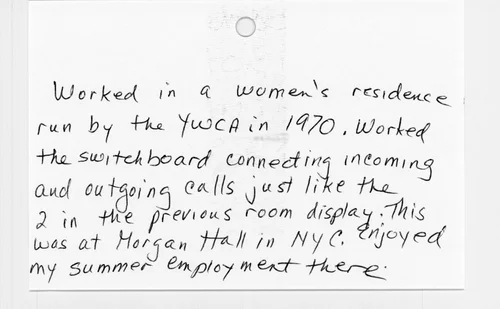 Worked in a women's residence
run by the YWCA in 1970. Worked
the switchboard connecting incoming
and outgoing calls just like the
2 in the previous room display. This
was at Morgan Hall in NYC. Enjoyed
my summer employment there.